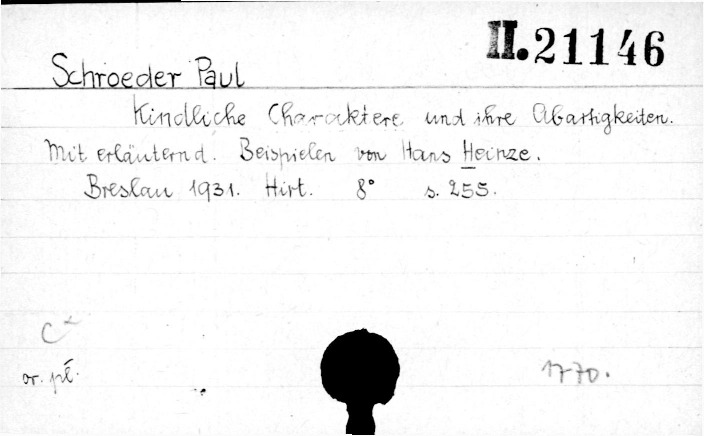 II. 21146
Schroeder Paul
Kindliche Charaktere und ihre Abartigkeiten.
Mit erläuternd. Beispielen von Hans Heinze.
Breslau 1931. Hirt. 8° s. 255.
or. pł.
1770.